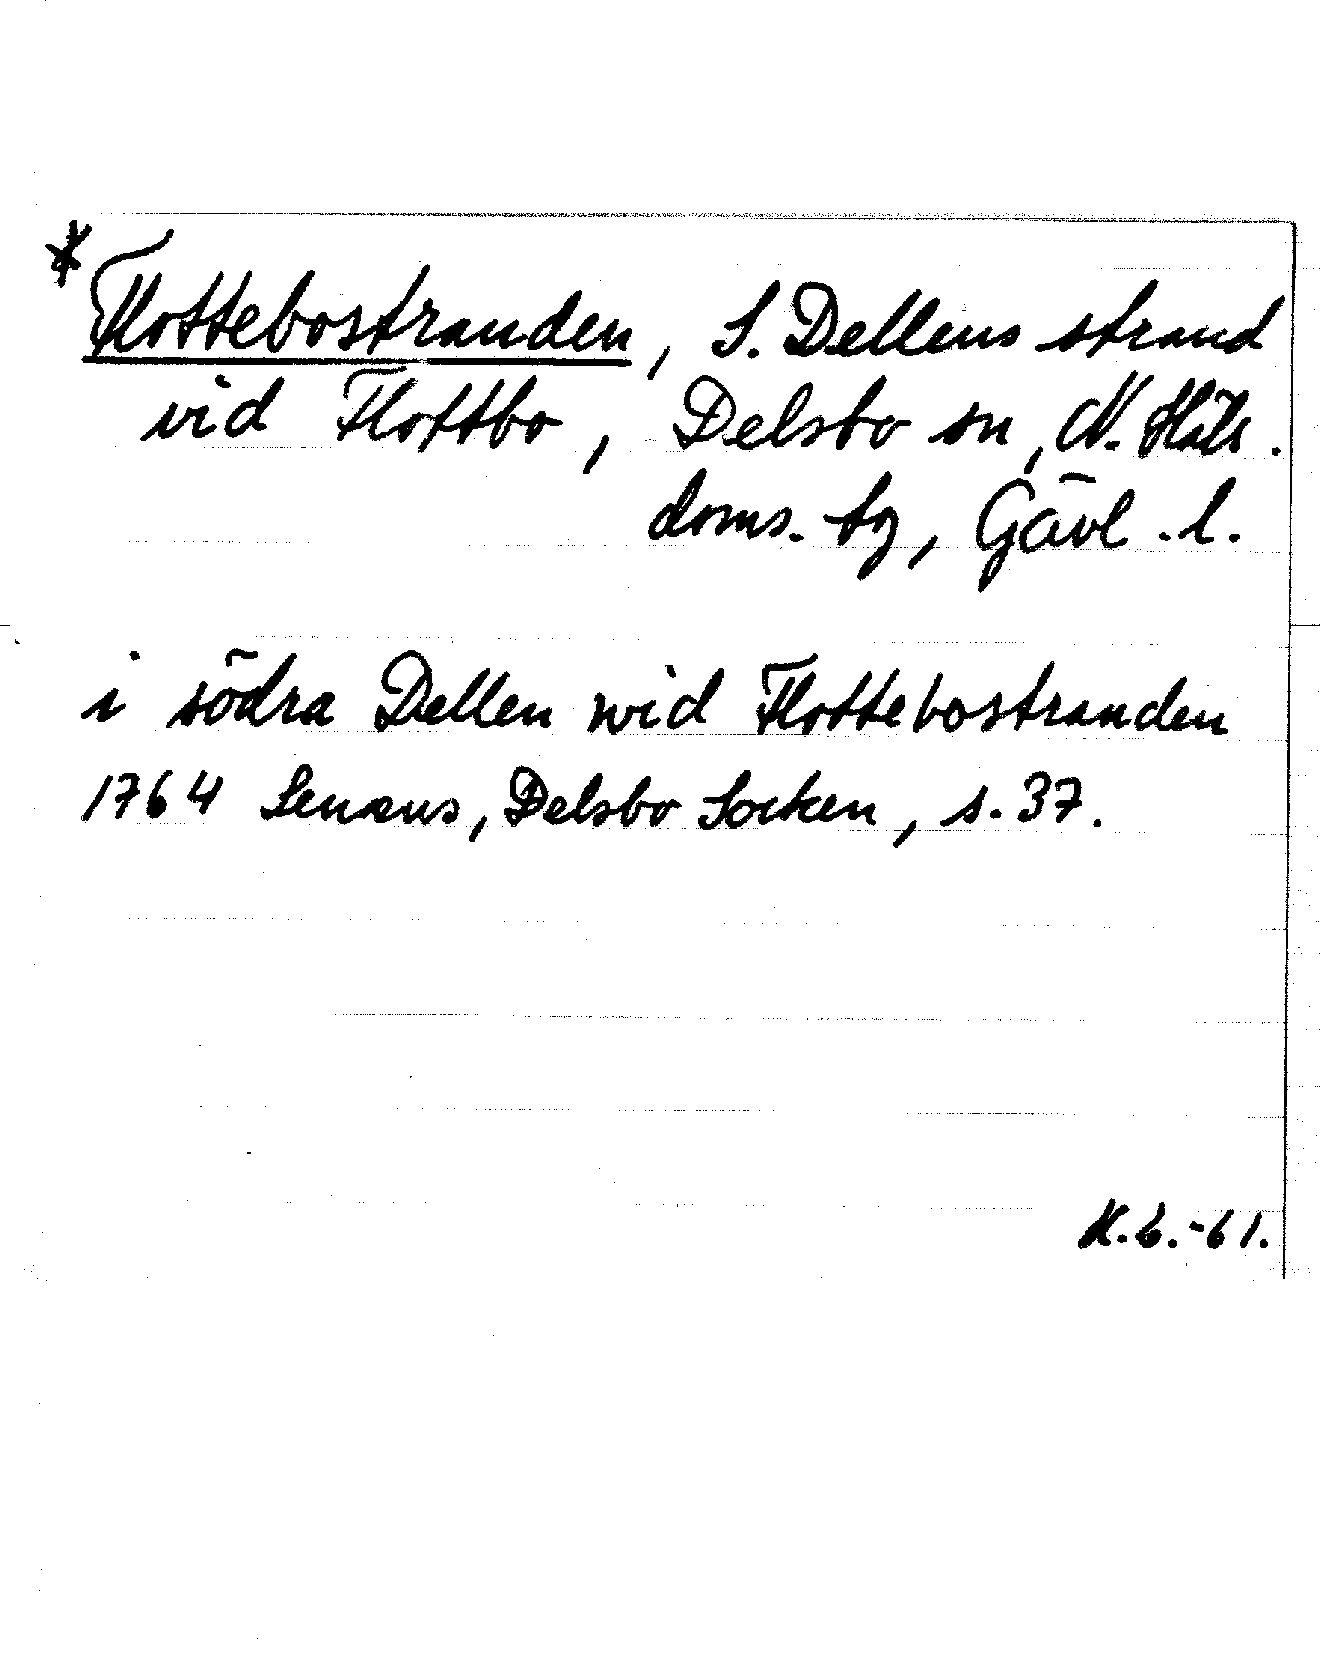 * Flottebostranden, S. Dellens strand
vid Flottbo, Delsbo sn, N. Häls.
doms. tg, Gävl. l.
i södra Dellen wid Flottebostranden
1764 Lenæus, Delsbo Socken, s. 37.
K.G.-61.